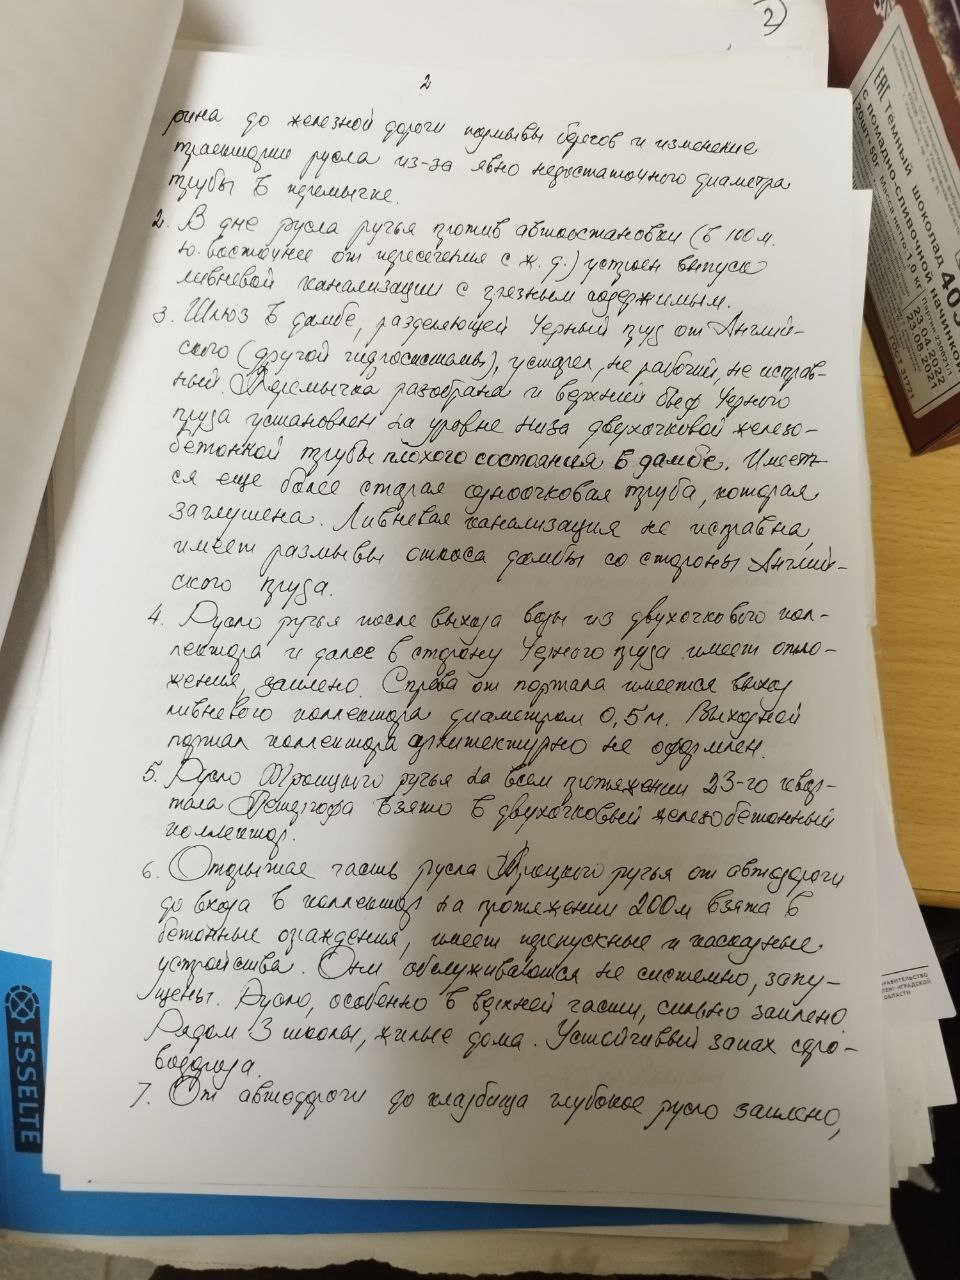 2
2
рина до железной дороги размывы берегов и изменение
траектории русла из-за явно недостаточного диаметра
трубы в перемычке.
2. В дне русла ручья против автоостановки (в 100 м.
ю. восточнее от пересечения с ж. д.) устроен выпуск
ливневой канализации с грязным содержимым.
3. Шлюз в дамбе, разделяющей Черный пруд от Англий-
ского (другой гидросистемы), устарел, не рабочий, не исправ-
ный. Перемычка разобрана и верхний бьеф Черного
пруда установлен на уровне низа двухочковой железо-
бетонной трубы плохого состояния в дамбе. Имеет-
ся еще более старая одноочковая труба, которая
заглушена. Ливневая канализация не исправна,
имеет размывы откоса дамбы со стороны Англий-
ского пруда.
4. Русло ручья после выхода воды из двухочкового кол-
лектора и далее в сторону Черного пруда имеет отло-
жения, заилено. Справа от портала имеется выход
ливневого коллектора диаметром 0,5 м. Выходной
портал коллектора архитектурно не оформлен.
5. Русло Троицкого ручья на всем протяжении 23-го квар-
тала Петергофа взято в двухочковый железобетонный
коллектор.
6. Открытая часть русла Троицкого ручья от автодороги
до входа в коллектор на протяжении 200 м взята в
бетонные ограждения, имеет перепускные и каскадные
устройства. Они обслуживаются не системно, запу-
щены. Русло, особенно в верхней части, сильно заилено.
Рядом 3 школы, жилые дома. Устойчивый запах серо-
водорода.
7. От автодороги до кладбища глубокое русло заилено,
ЕАС Тёмный шоколад
с помадно-сливочной начинкой
20шт×50г Масса нетто: 1,0 кг
23.04.2022
23.08.2021
ГОСТ 31721
ESSELTE